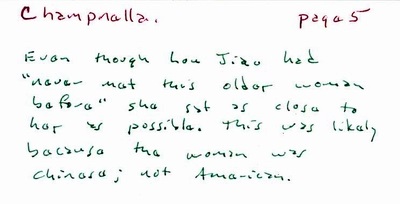 Champnalla. page 5
Even though Lou Jiao had
"never met this older woman
before" she sat as close to
her as possible. This was likely
because the woman was
chinese; not American.